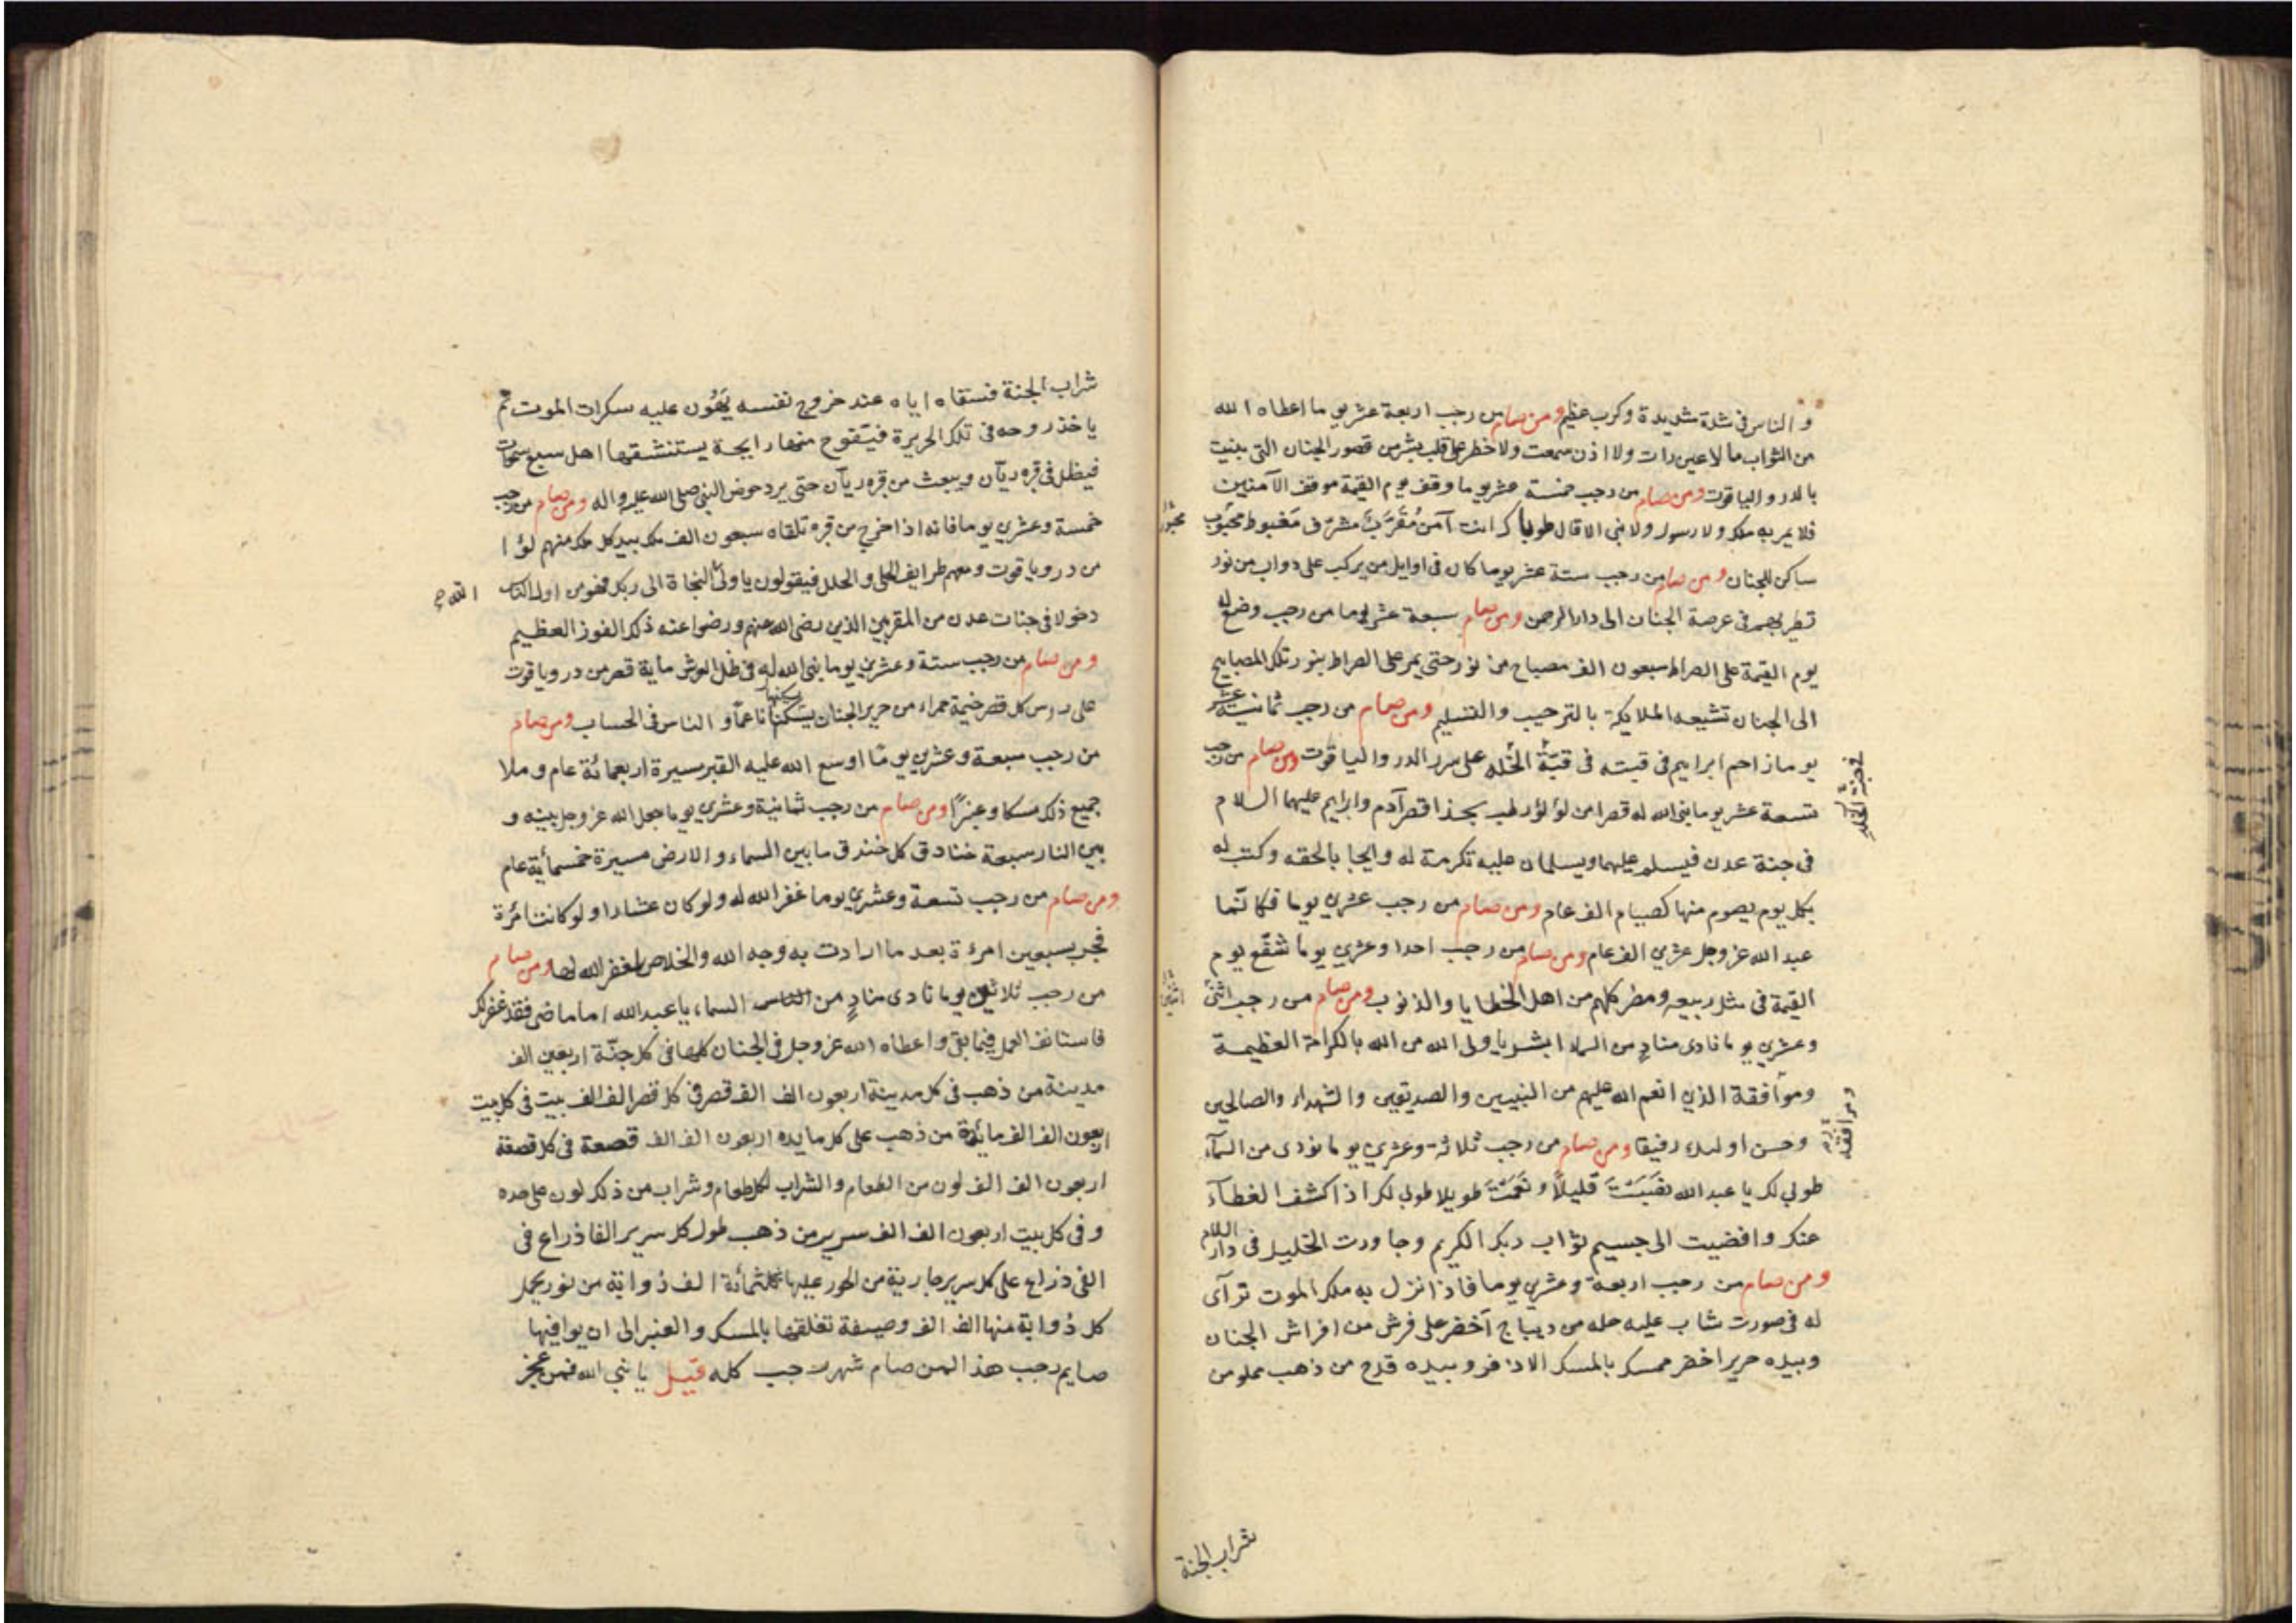 و الناس فى شدة شديدة وكرب عظيم ومن صام من رجب اربعة عشر يوما اعطاه الله
من الثواب ما لا عين رات ولا اذن سمعت ولا خطر على قلب بشر من قصور الجنان التى بنيت
بالدر و الياقوت ومن صام من رجب خمسة عشر يوما وقف يوم القيمة موقف الآمنين
فلا يمر به ملك ولا رسول ولا نبى الا قال طوباك انت آمن مُقَرَّبٌ مشرف مغبوط محبوب
محبور
ساكن للجنان ومن صام من رجب ستة عشر يوما كان فى اوايل من يركب على دواب من نور
تطير بهم فى عرصة الجنان الى دار الرحمن ومن صام سبعة عشر يوما من رجب وضع له
يوم القيمة على الصراط سبعون الف مصباح من نور حتى يمر على الصراط بنور تلك المصابيح
الى الجنان تشيعه الملايكة بالترحيب والتسليم ومن صام من رجب ثمانية عشر
يوما زاحم ابراهيم فى قبته فى قبة الخلد على سرر الدر والياقوت ومن صام من رجب
فى جنة الخلد
تسعة عشر يوما بنى الله له قصرا من لؤلؤ رطب بحذا قصر آدم وابراهيم عليهما السلام
فى جنة عدن فيسلم عليهما ويسلمان عليه تكرمة له وايجابا لحقه وكتب له
بكل يوم يصوم منها كصيام الف عام ومن صام من رجب عشرين يوما فكانّما
عبد الله عز وجل عشرين الف عام ومن صام من رجب احدا وعشرين يوما شفّع يوم
القيمة فى مثل ربيعه ومضر كلهم من اهل الخطايا والذنوب ومن صام من رجب اثنى
اثنين
وعشرين يوما نادى منادٍ من السماء ابشر يا ولى الله من الله بالكرامة العظيمة
وموافقة الذين انعم الله عليهم من النبيين والصديقين والشهداء والصالحين
ومرافقة
وحسن اولئك رفيقا ومن صام من رجب ثلاثة وعشرين يوما نودى من السمآء
طوبى لك يا عبد الله نصبت قليلاً ونعمت طويلا طوبى لك اذا كشف الغطآء
عنك وافضيت الى جسيم ثواب ربك الكريم وجاورت الخليل فى دار السلام
ومن صام من رجب اربعة وعشرين يوما فاذا نزل به ملك الموت تراى
له فى صورت شاب عليه حله من ديباج اخضر على فرش من افراش الجنان
وبيده حرير اخضر ممسك بالمسك الاذفر وبيده قدح من ذهب مملو من
شراب الجنة
شراب الجنة فسقاه اياه عند خروج نفسه يهون عليه سكرات الموت ثم
ياخذ روحه فى تلك الحريرة فيتفوح منها رايحة يستنشقها اهل سبع سموات
فيظل فى قبره ريّان ويبعث من قبره ريّان حتى يرد حوض النبى صلى الله عليه واله ومن صام من رجب
خمسة وعشرين يوما فانه اذا خرج من قبره تلقاه سبعون الف ملك بيد كل ملك منهم لؤا
من در وياقوت ومعهم طرايف الحلى والحلل فيقولون يا ولى النجاة الى ربك فهو من اول الناس
الله
دخولا فى جنات عدن من المقربين الذين رضى الله عنهم ورضوا عنه ذلك الفوز العظيم
ومن صام من رجب ستة وعشرين يوما بنى الله له فى ظل العرش ماية قصر من در وياقوت
على رؤس كل قصر خيمة حمراء من حرير الجنان يسكنها ناعماً و الناس فى الحساب ومن صام
يسكنها
من رجب سبعة وعشرين يومًا اوسع الله عليه القبر مسيرة اربعمائة عام وملا
جميع ذلك مسكا وعنبرًا ومن صام من رجب ثمانية وعشرين يوما جعل الله عز وجل بينه و
بين النار سبعة خنادق كل خندق ما بين السماء والارض مسيرة خمسمائة عام
ومن صام من رجب تسعة وعشرين يوما غفر الله له ولو كان عشارا ولو كانت امرأة
فجرت بسبعين امرءة بعد ما ارادت به وجه الله والخلاص لغفر الله لها ومن صام
من رجب ثلاثين يوما نادى منادٍ من السماء يا عبد الله اما ما مضى فقد غفر لك
فاستانف العمل فيما بقى واعطاه الله عز وجل فى الجنان كلها فى كل جنّة اربعين الف
مدينة من ذهب فى كل مدينة اربعون الف الف قصر فى كل قصر الف الف بيت فى كل بيت
اربعون الف الف مائدة من ذهب على كل مايده اربعون الف الف قصعة فى كل قصعة
اربعون الف الف لون من الطعام والشراب لكل طعام وشراب من ذلك لون على حده
وفى كل بيت اربعون الف الف سرير من ذهب طول كل سرير الفا ذراع فى
الفى ذراع على كل سرير جارية من الحور عليها ثلثمائة الف ذوابة من نور يحمل
كل ذوابة منها الف الف وصيفة تغلفها بالمسك والعنبر الى ان يوافيها
صايم رجب هذا لمن صام شهر رجب كله قيل يا نبى الله فمن عجز